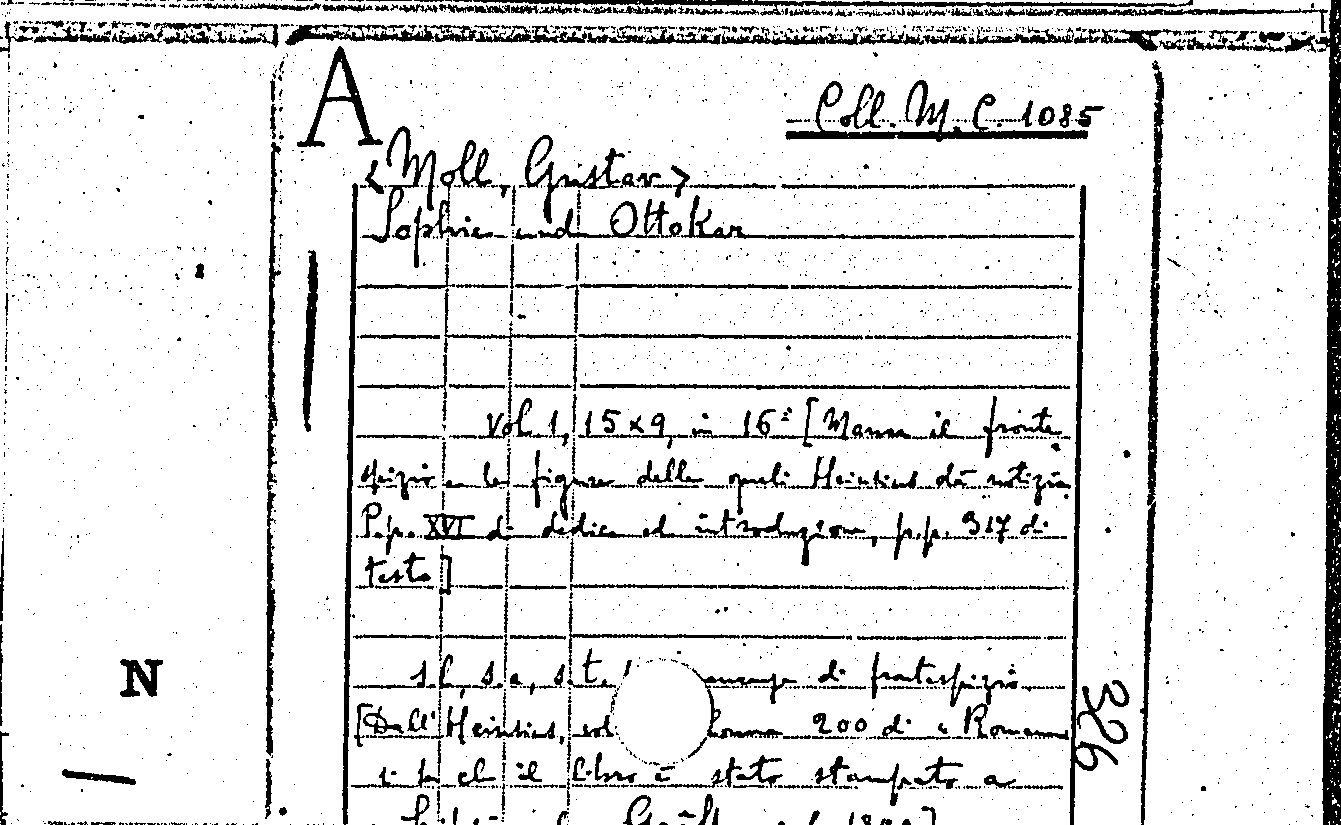 A
Coll. M. C. 1085
<Moll, Gustav>
Sophie und Ottokar
Vol. 1, 15 x 9, in 16° [Manca il fronte
spizio e le figure delle quali Heinsius dà notizia
P.p. XVI di dedica ed introduzione, p.p. 317 di
testo]
s.l., s.a., s.t. di frontespizio
[Dall' Heinsius, vol 200 di « Romane
si ha che il libro è stato stampato a
326
N